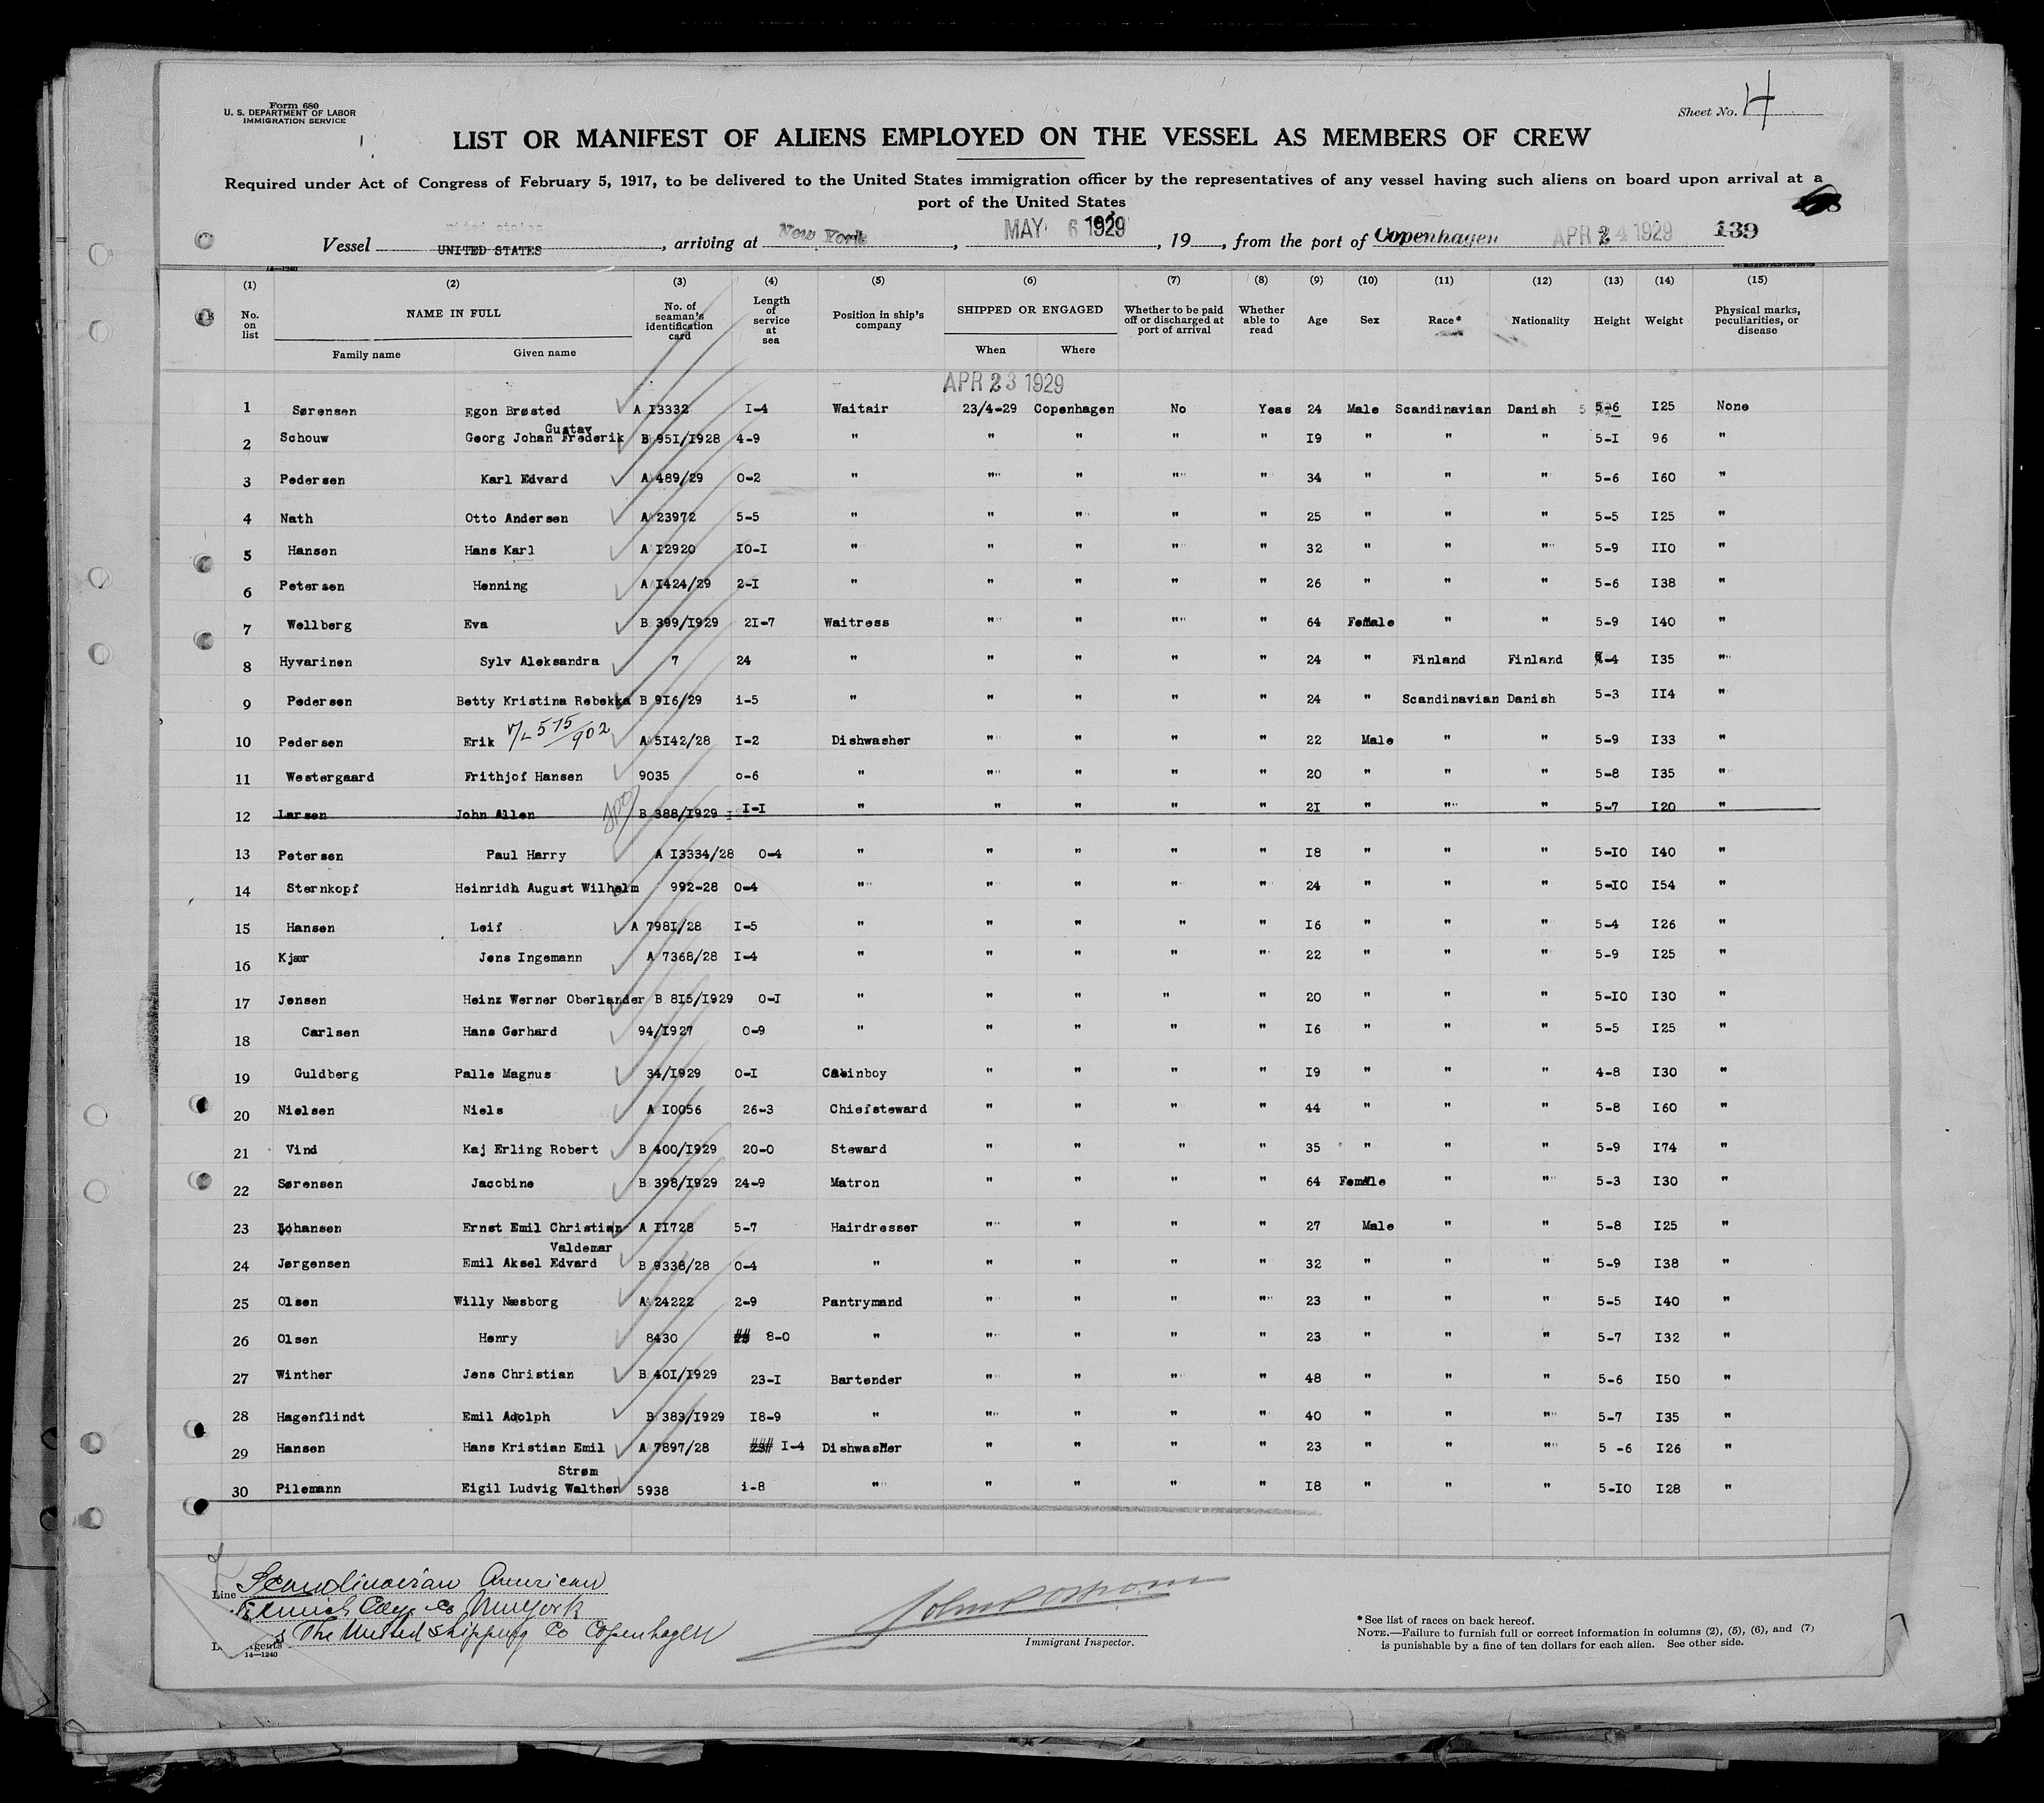 Form 680
U. S. DEPARTMENT OF LABOR
IMMIGRATION SERVICE
Sheet No. 4
LIST OR MANIFEST OF ALIENS EMPLOYED ON THE VESSEL AS MEMBERS OF CREW
Required under Act of Congress of February 5, 1917, to be delivered to the United States immigration officer by the representatives of any vessel having such aliens on board upon arrival at a
port of the United States
Vessel UNITED STATES, arriving at New York, MAY 6 1929, 19, from the port of Copenhagen APR 24 1929 139
14—1240
(1) (2) (3) (4) (5) (6) (7) (8) (9) (10) (11) (12) (13) (14) (15)
No. on list NAME IN FULL Family name Given name No. of seaman's identification card Length of service at sea Position in ship's company SHIPPED OR ENGAGED When Where Whether to be paid off or discharged at port of arrival Whether able to read Age Sex Race* Nationality Height Weight Physical marks, peculiarities, or disease
APR 23 1929
1 Sørensen Egon Brøsted A I3332 I-4 Waitair 23/4-29 Copenhagen No Yeas 24 Male Scandinavian Danish 5-6 I25 None
Gustav
2 Schouw Georg Johan Frederik B 95I/I928 4-9 " " " " " I9 " " " 5-I 96 "
3 Pedersen Karl Edvard A 489/29 0-2 " " " " " 34 " " " 5-6 I60 "
4 Nath Otto Andersen A 23972 5-5 " " " " " 25 " " " 5-5 I25 "
5 Hansen Hans Karl A I2920 I0-I " " " " " 32 " " " 5-9 II0 "
6 Petersen Henning A I424/29 2-I " " " " " 26 " " " 5-6 I38 "
7 Wellberg Eva B 399/I929 2I-7 Waitress " " " " 64 Female " " 5-9 I40 "
8 Hyvarinen Sylv Aleksandra 7 24 " " " " " 24 " Finland Finland -4 I35 "
9 Pedersen Betty Kristina Rebekka B 9I6/29 i-5 " " " " " 24 " Scandinavian Danish 5-3 II4 "
10 Pedersen Erik V/L 575/902 A 5I42/28 I-2 Dishwasher " " " " 22 Male " " 5-9 I33 "
11 Westergaard Frithjof Hansen 9035 o-6 " " " " " 20 " " " 5-8 I35 "
12 Larsen John Allen B 388/I929 I-I " " " " " 2I " " " 5-7 I20 "
13 Petersen Paul Harry A I3334/28 0-4 " " " " " I8 " " " 5-I0 I40 "
14 Sternkopf Heinridh August Wilhelm 992-28 0-4 " " " " " 24 " " " 5-I0 I54 "
15 Hansen Leif A 798I/28 I-5 " " " " " I6 " " " 5-4 I26 "
16 Kjær Jens Ingemann A 7368/28 I-4 " " " " " 22 " " " 5-9 I25 "
17 Jensen Heinz Werner Oberlander B 8I5/I929 0-I " " " " " 20 " " " 5-I0 I30 "
18 Carlsen Hans Gerhard 94/I927 0-9 " " " " " I6 " " " 5-5 I25 "
19 Guldberg Palle Magnus 34/I929 0-I Cabinboy " " " " I9 " " " 4-8 I30 "
20 Nielsen Niels A I0056 26-3 Chiefsteward " " " " 44 " " " 5-8 I60 "
21 Vind Kaj Erling Robert B 400/I929 20-0 Steward " " " " 35 " " " 5-9 I74 "
22 Sørensen Jacobine B 398/I929 24-9 Matron " " " " 64 Female " " 5-3 I30 "
23 Johansen Ernst Emil Christian A II728 5-7 Hairdresser " " " " 27 Male " " 5-8 I25 "
Valdemar
24 Jørgensen Emil Aksel Edvard B 9338/28 0-4 " " " " " 32 " " " 5-9 I38 "
25 Olsen Willy Næsborg A 24222 2-9 Pantrymand " " " " 23 " " " 5-5 I40 "
26 Olsen Henry 8430 8-0 " " " " " 23 " " " 5-7 I32 "
27 Winther Jens Christian B 40I/I929 23-I Bartender " " " " 48 " " " 5-6 I50 "
28 Hagenflindt Emil Adolph B 383/I929 I8-9 " " " " " 40 " " " 5-7 I35 "
29 Hansen Hans Kristian Emil A 7897/28 I-4 Dishwasher " " " " 23 " " " 5 -6 I26 "
Strøm
30 Pilemann Eigil Ludvig Walther 5938 i-8 " " " " " I8 " " " 5-I0 I28 "
Line Scandinavian American
New York
The United Shipping Co Copenhagen
Agents
14—1240
Immigrant Inspector.
* See list of races on back hereof.
NOTE.—Failure to furnish full or correct information in columns (2), (5), (6), and (7)
is punishable by a fine of ten dollars for each alien. See other side.